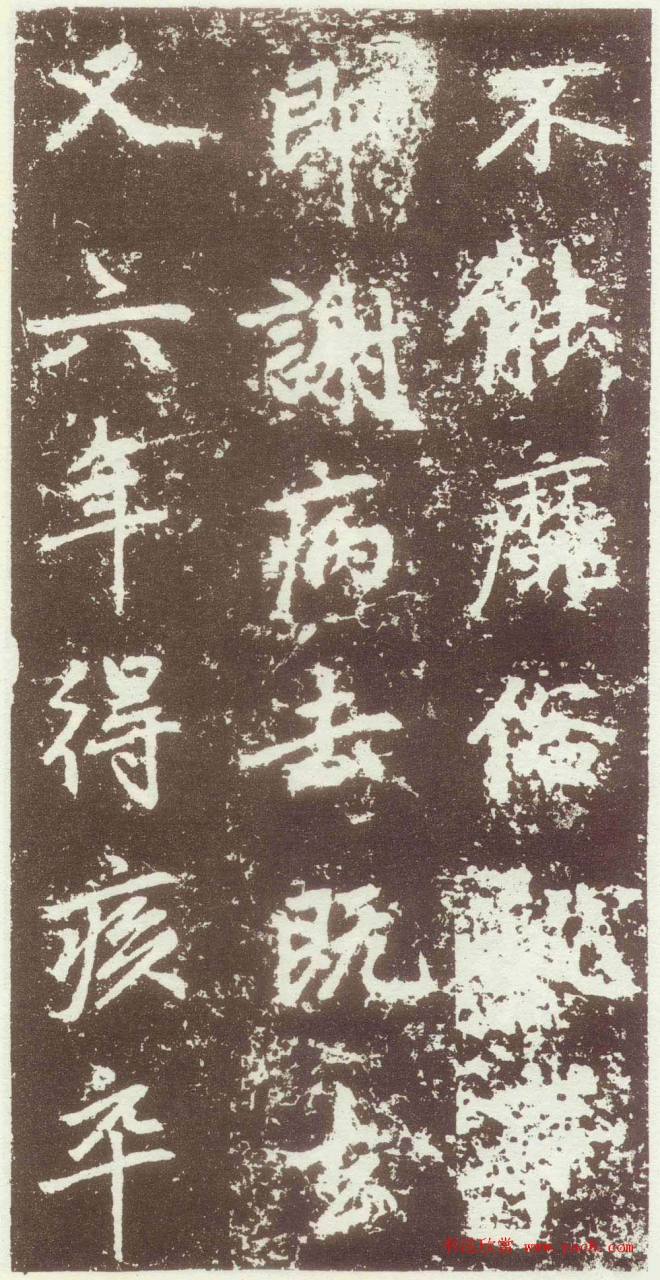 不能靡俗
即謝病去既去
又六年得痎卒
书法欣赏 www.yac8.com